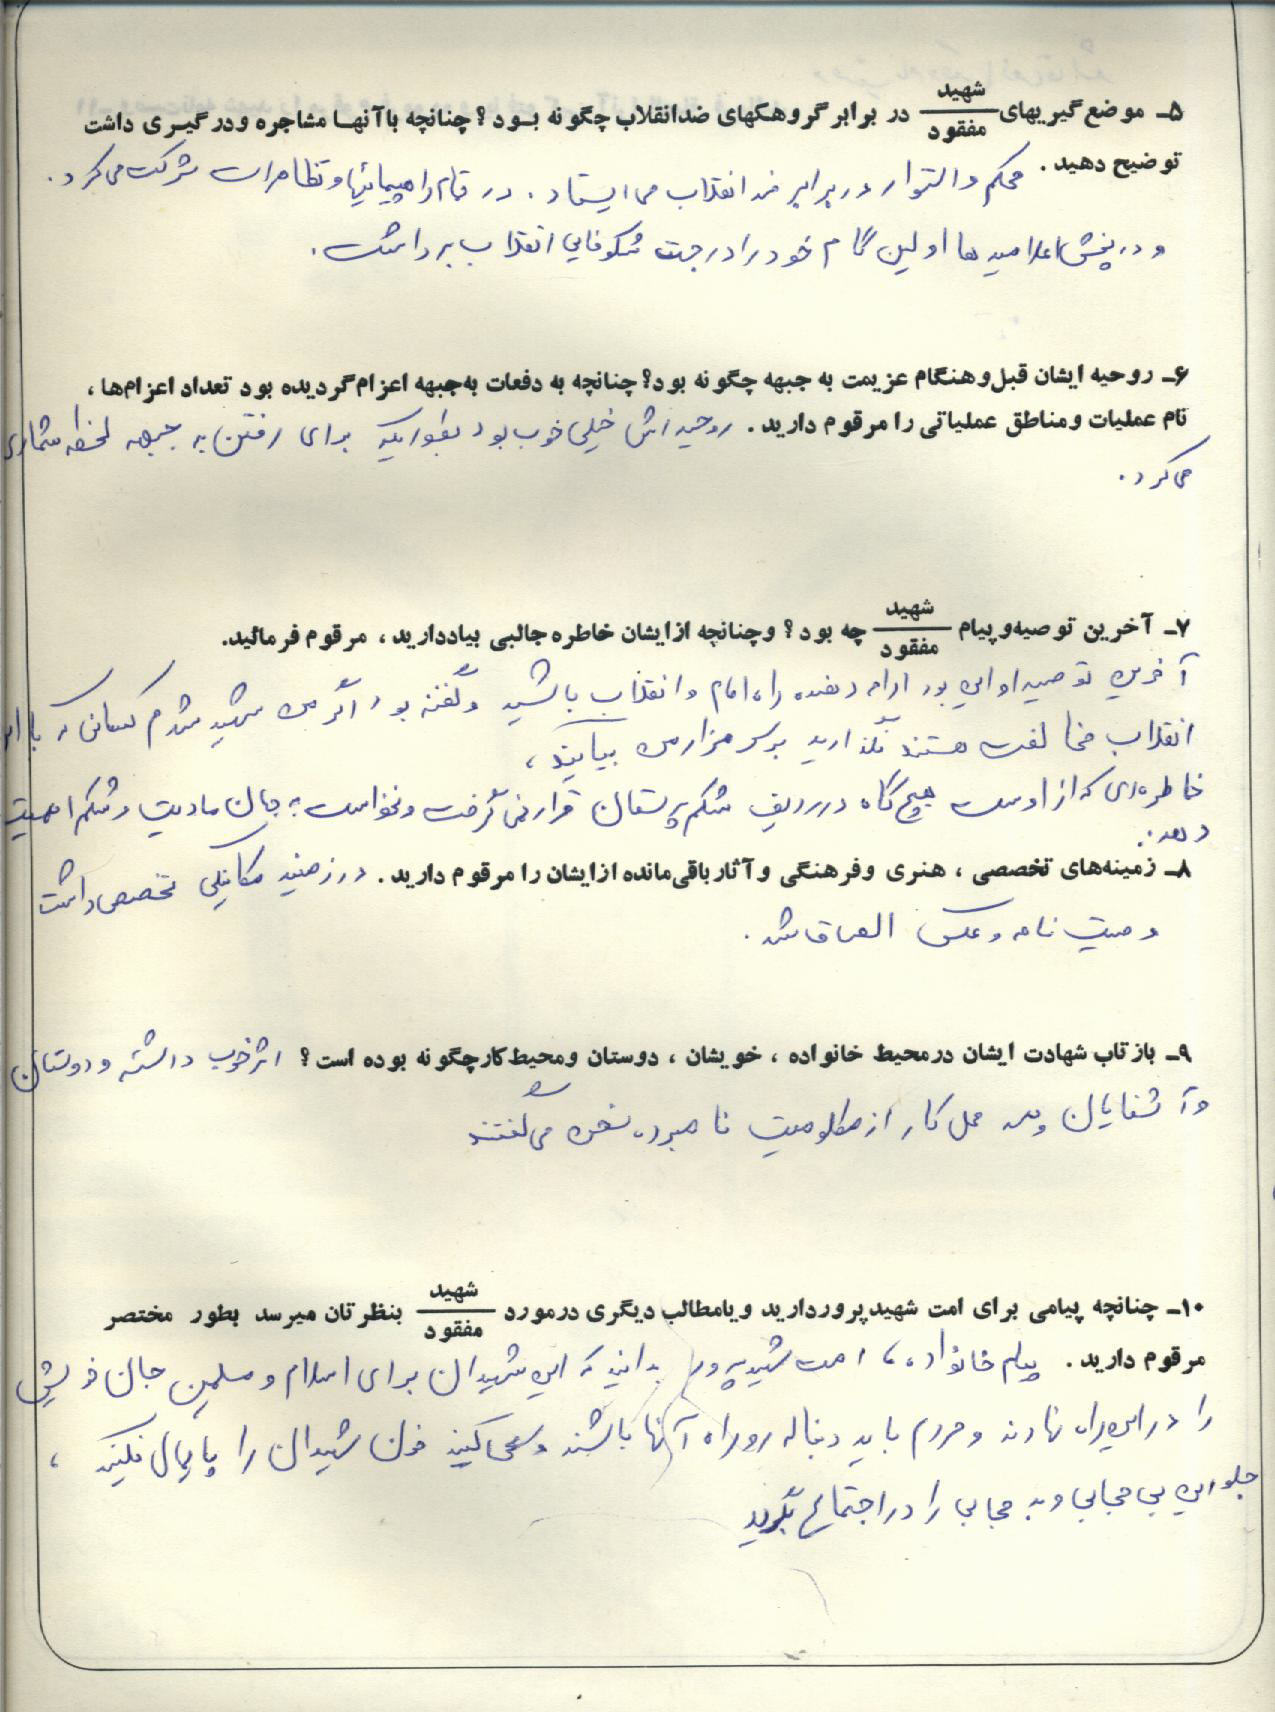 ۵ـ موضع گیریهای شهید / مفقود در برابر گروهکهای ضدانقلاب چگونه بود؟ چنانچه باآنها مشاجره و درگیری داشت
توضیح دهید. محکم و استوار در برابر ضد انقلاب می ایستاد. در تمام راهپیمائیها و تظاهرات شرکت می کرد.
و در پخش اعلامیه ها اولین گام خود را در جهت شکوفایی انقلاب برداشت.
۶ـ روحیه ایشان قبل و هنگام عزیمت به جبهه چگونه بود؟ چنانچه به دفعات به جبهه اعزام گردیده بود تعداد اعزام‌ها،
نام عملیات و مناطق عملیاتی را مرقوم دارید. روحیه اش خیلی خوب بود بطوریکه برای رفتن به جبهه لحظه شماری
می کرد.
۷ـ آخرین توصیه و پیام شهید / مفقود چه بود؟ و چنانچه از ایشان خاطره جالبی بیاد دارید، مرقوم فرمائید.
آخرین توصیه او این بود ادامه دهنده راه امام و انقلاب باشید و گفته بود اگر من شهید شدم کسانی که با این
انقلاب مخالفت هستند نگذارید بر سر مزار من بیایند،
خاطره‌ای که از اوست هیچ گاه در ردیف شکم پرستان قرار نمی گرفت و نخواست به جهان مادیت و شکم اهمیت
دهد.
۸ـ زمینه‌های تخصصی، هنری و فرهنگی و آثار باقی مانده از ایشان را مرقوم دارید. در زمینه مکانیکی تخصص داشت
وصیت نامه و عکس الصاق شد.
۹ـ بازتاب شهادت ایشان در محیط خانواده، خویشان، دوستان و محیط کار چگونه بوده است؟ اثر خوب داشته و دوستان
و آشنایان و محل کار از مظلومیت نامبرده سخن می گفتند
۱۰ـ چنانچه پیامی برای امت شهیدپرور دارید و یا مطالب دیگری در مورد شهید / مفقود بنظرتان میرسد بطور مختصر
مرقوم دارید. پیام خانواده، امت شهید پرور بدانید که این شهیدان برای اسلام و مسلمین جان خویش
را در این راه نهادند و مردم باید دنباله رو راه آنها باشند و سعی کنید خون شهیدان را پایمال نکنید،
جلو این بی حجابی و بد حجابی را در اجتماع بگیرید